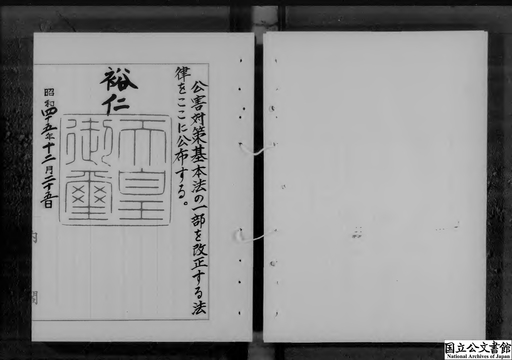 公害対策基本法の一部を改正する法
律をここに公布する。
裕仁
天皇
御璽
昭和四十五年十二月二十五日
内閣
国立公文書館
National Archives of Japan